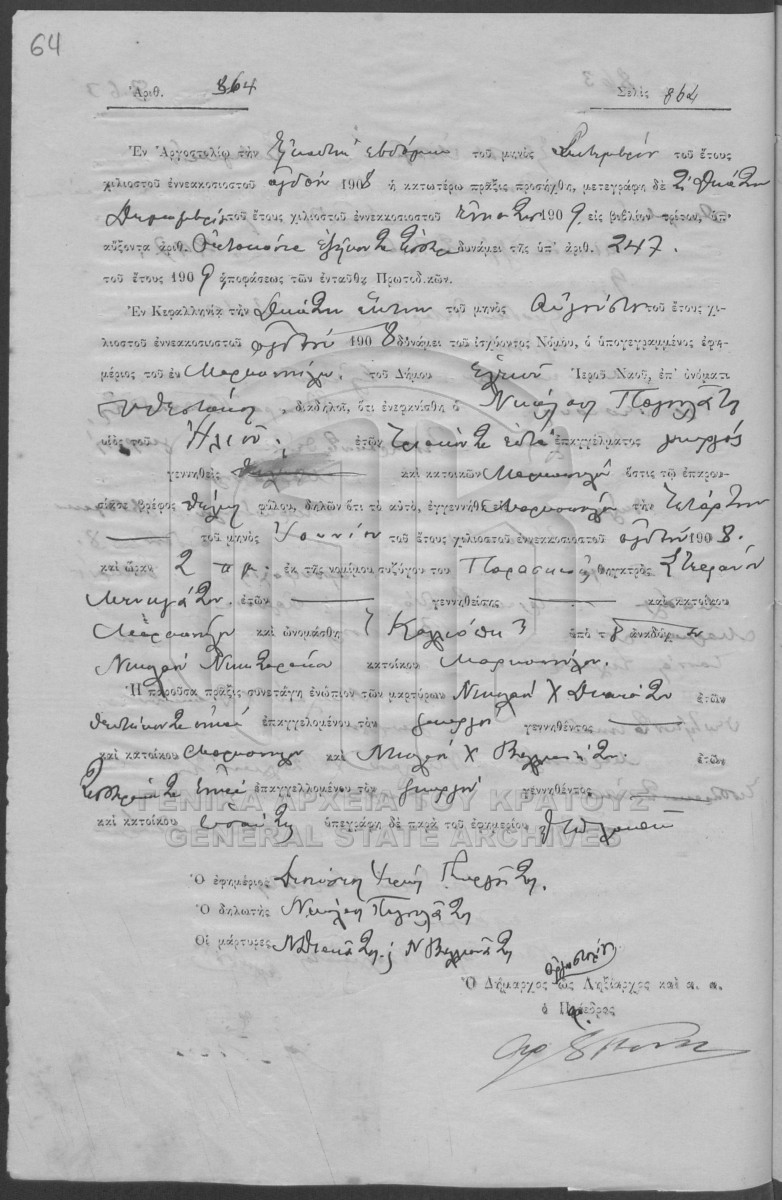 64
Ἀριθ. 864
Σελὶς 864
Ἐν Ἀργοστολίῳ τὴν Εἰκοστὴν ἑβδόμην τοῦ μηνὸς Σεπτεμβρίου τοῦ ἔτους
χιλιοστοῦ ἐννεακοσιοστοῦ ὀγδόου 1908 ἡ κατωτέρω πρᾶξις προσήχθη, μετεγράφη δὲ
Δεκεμβρίου τοῦ ἔτους χιλιοστοῦ ἐννεακοσιοστοῦ ἐννάτου 1909 εἰς βιβλίον τρίτον, ὑπ'
αὔξοντα ἀριθ. Ὀκτακόσια ἑξήκοντα τέσσερα δυνάμει τῆς ὑπ' ἀριθ. 247.
τοῦ ἔτους 1909 ἀποφάσεως τῶν ἐνταῦθα Πρωτοδικῶν.
Ἐν Κεφαλληνίᾳ τὴν Δεκάτην ἕκτην τοῦ μηνὸς Αὐγούστου τοῦ ἔτους χι-
λιοστοῦ ἐννεακοσιοστοῦ ὀγδόου 1908 δυνάμει τοῦ ἰσχύοντος Νόμου, ὁ ὑπογεγραμμένος ἐφη-
μέριος τοῦ ἐν Μαρκοπούλῳ. τοῦ Δήμου Ἐλειοῦ Ἱεροῦ Ναοῦ, ἐπ' ὀνόματι
διαδηλοῖ, ὅτι ἐνεφανίσθη ὁ Νικόλαος Παγουλάτος
υἱὸς τοῦ Ἠλιοῦ. ἐτῶν τριάκοντα ἑπτὰ ἐπαγγέλματος γεωργὸς
γεννηθεὶς καὶ κατοικῶν Μαρκοπούλου ὅστις τῷ ἐπαρου-
σίασε βρέφος θῆλυ φύλου, δηλῶν ὅτι τὸ αὐτὸ, ἐγεννήθη Μαρκοπούλῳ τὴν τετάρτην
τοῦ μηνὸς Ἰουνίου τοῦ ἔτους χιλιοστοῦ ἐννεακοσιοστοῦ ὀγδόου 1908.
καὶ ὥραν 2 π μ. ἐκ τῆς νομίμου συζύγου του Παρασκευῆς θυγατρὸς Στεφάνου
Μενεγάτου. ἐτῶν γεννηθείσης καὶ κατοίκου
Μαρκοπούλου καὶ ὠνομάσθη Καλλιόπη ὑπὸ τοῦ ἀναδόχου
Νικολάου κατοίκου Μαρκοπούλου.
Ἡ παροῦσα πρᾶξις συνετάγη ἐνώπιον τῶν μαρτύρων Νικολάου Χ ἐτῶν
ἐπαγγελομένου τὸν γεωργὸν γεννηθέντος
καὶ κατοίκου Μαρκοπούλου καὶ Νικολάου Χ ἐτῶν
ἐπαγγελλομένου τὸν γεωργὸν γεννηθέντος
καὶ κατοίκου ὑπεγράφη δὲ παρὰ τοῦ ἐφημερίου
ΓΕΝΙΚΑ ΑΡΧΕΙΑ ΤΟΥ ΚΡΑΤΟΥΣ
GENERAL STATE ARCHIVES
Ὁ ἐφημέριος Διονύσιος
Ὁ δηλωτὴς Νικόλαος Παγουλάτος
Οἱ μάρτυρες
Ὁ Δήμαρχος ὡς Ληξίαρχος καὶ α. α.
ὁ Πρόεδρος